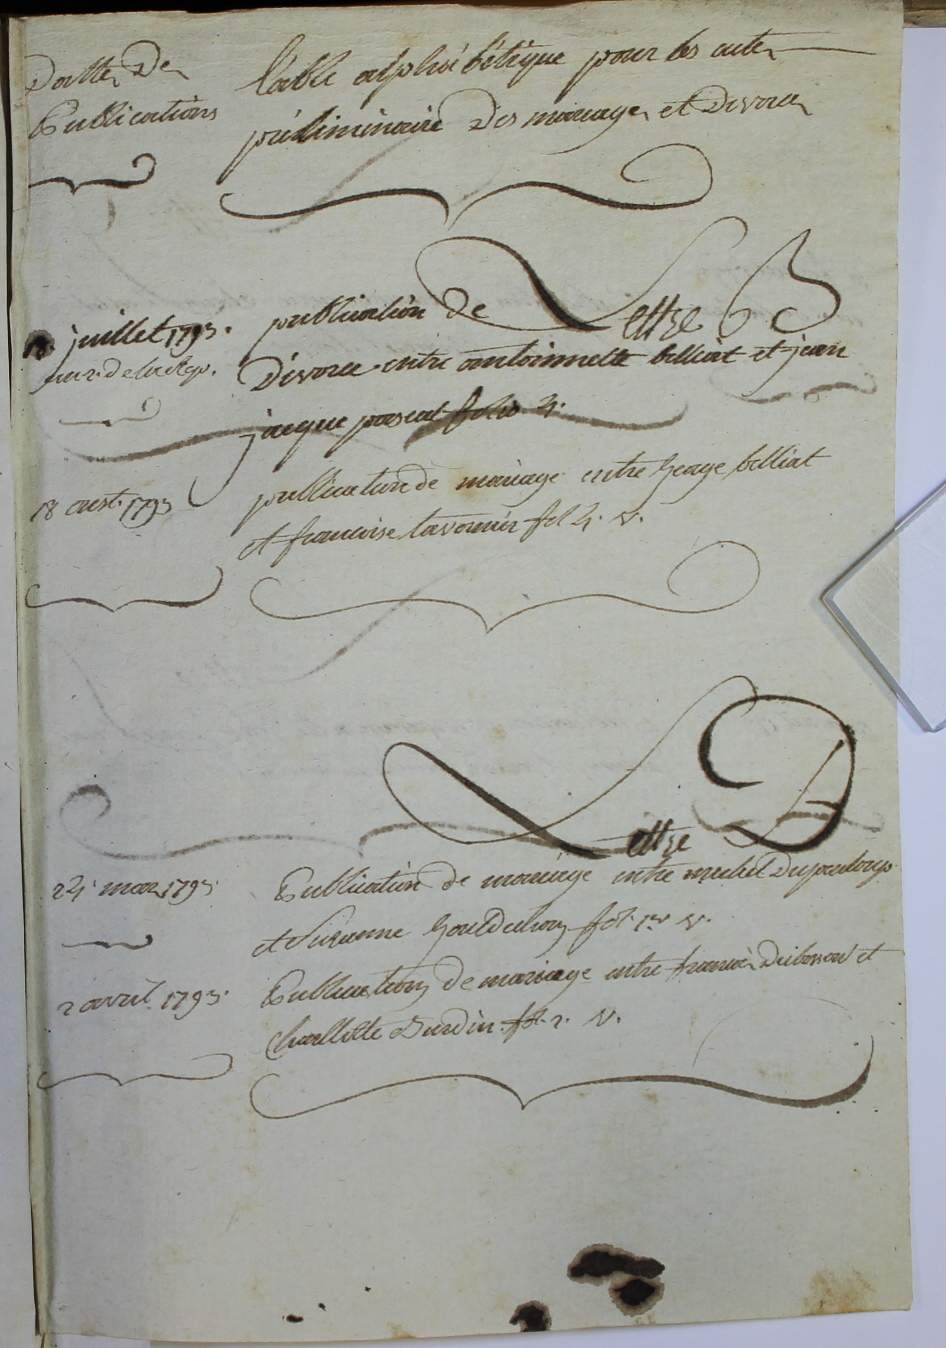 Datte De
Publications
Table alphabétique pour les actes
préliminaire Des mariages et Divorce
Lettre B
juillet 1793.
de la Rep.
publication de
Divorce entre antoinnette belliat et jean
jacque pascal folio 4.
18 aust 1793
publication de mariage entre belliat
et francoise tavernier fol 4. v.
Lettre D
24 mars 1793
Publication de mariage entre michel Dupanloup
et Susanne fol. 1er v.
2 avril 1793.
Publication de mariage entre francois et
Charllotte Durdin fol. 2. v.